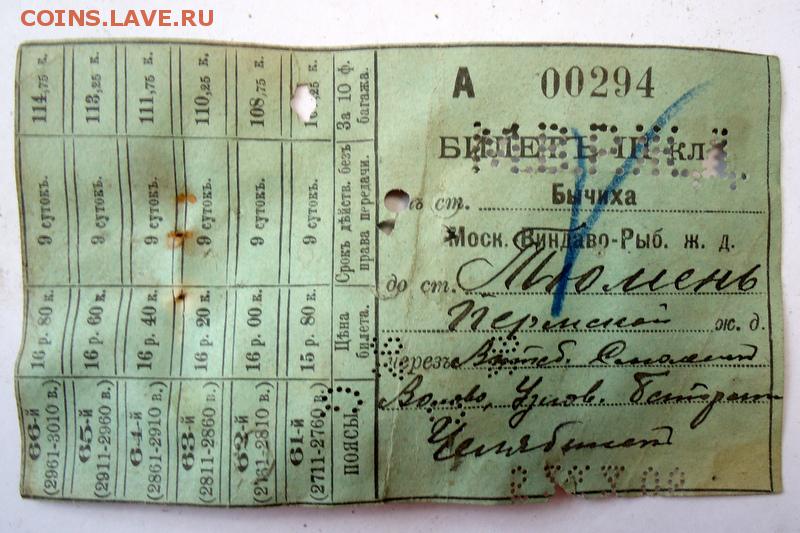 COINS.LAVE.RU
А 00294
БИЛЕТЪ III кл.
ст. Бычиха
Моск. Виндаво-Рыб. ж. д.
до ст. Тюмень
Пермской ж. д.
черезъ Витеб. Смоленск
Волово, Узлов.
Челябинск
ПОЯСЫ. Цѣна билета. Срокъ дѣйств. безъ права передачи. За 10 ф. багажа.
61-й (2711-2760 в.) 15 р. 80 к. 9 сутокъ. ,25 к.
62-й (2761-2810 в.) 16 р. 00 к. 9 сутокъ. 108,75 к.
63-й (2811-2860 в.) 16 р. 20 к. 9 сутокъ. 110,25 к.
64-й (2861-2910 в.) 16 р. 40 к. 9 сутокъ. 111,75 к.
65-й (2911-2960 в.) 16 р. 60 к. 9 сутокъ. 113,25 к.
66-й (2961-3010 в.) 16 р. 80 к. 9 сутокъ. 114,75 к.